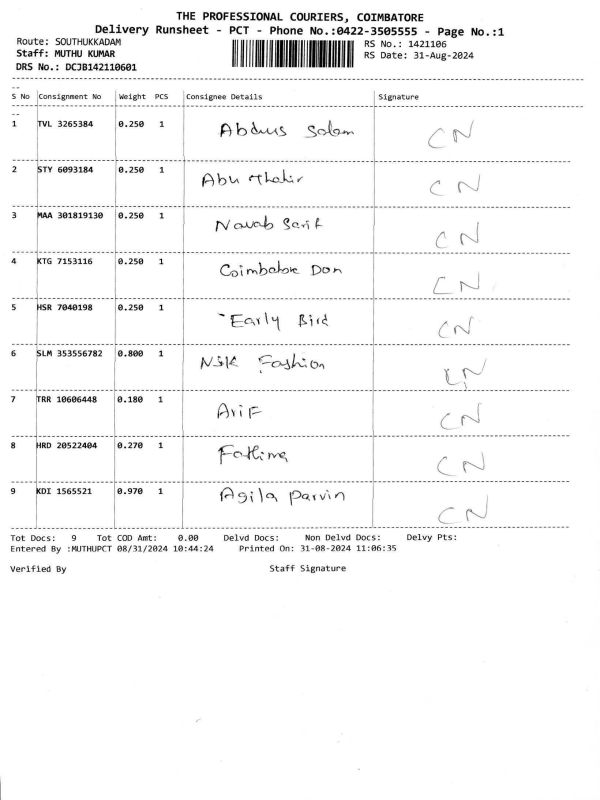 THE PROFESSIONAL COURIERS, COIMBATORE
Delivery Runsheet - PCT - Phone No.:0422-3505555 - Page No.:1
Route: SOUTHUKKADAM RS No.: 1421106
Staff: MUTHU KUMAR RS Date: 31-Aug-2024
DRS No.: DCJB142110601
S No Consignment No Weight PCS Consignee Details Signature
1 TVL 3265384 0.250 1 Abdus Salam CN
2 STY 6093184 0.250 1 Abu Thahir CN
3 MAA 301819130 0.250 1 Navab Sarif CN
4 KTG 7153116 0.250 1 Coimbatore Don CN
5 HSR 7040198 0.250 1 Early Bird CN
6 SLM 353556782 0.800 1 NSK Fashion CN
7 TRR 10606448 0.180 1 Arif CN
8 HRD 20522404 0.270 1 Fathima CN
9 KDI 1565521 0.970 1 Agila parvin CN
Tot Docs: 9 Tot COD Amt: 0.00 Delvd Docs: Non Delvd Docs: Delvy Pts:
Entered By :MUTHUPCT 08/31/2024 10:44:24 Printed On: 31-08-2024 11:06:35
Verified By Staff Signature